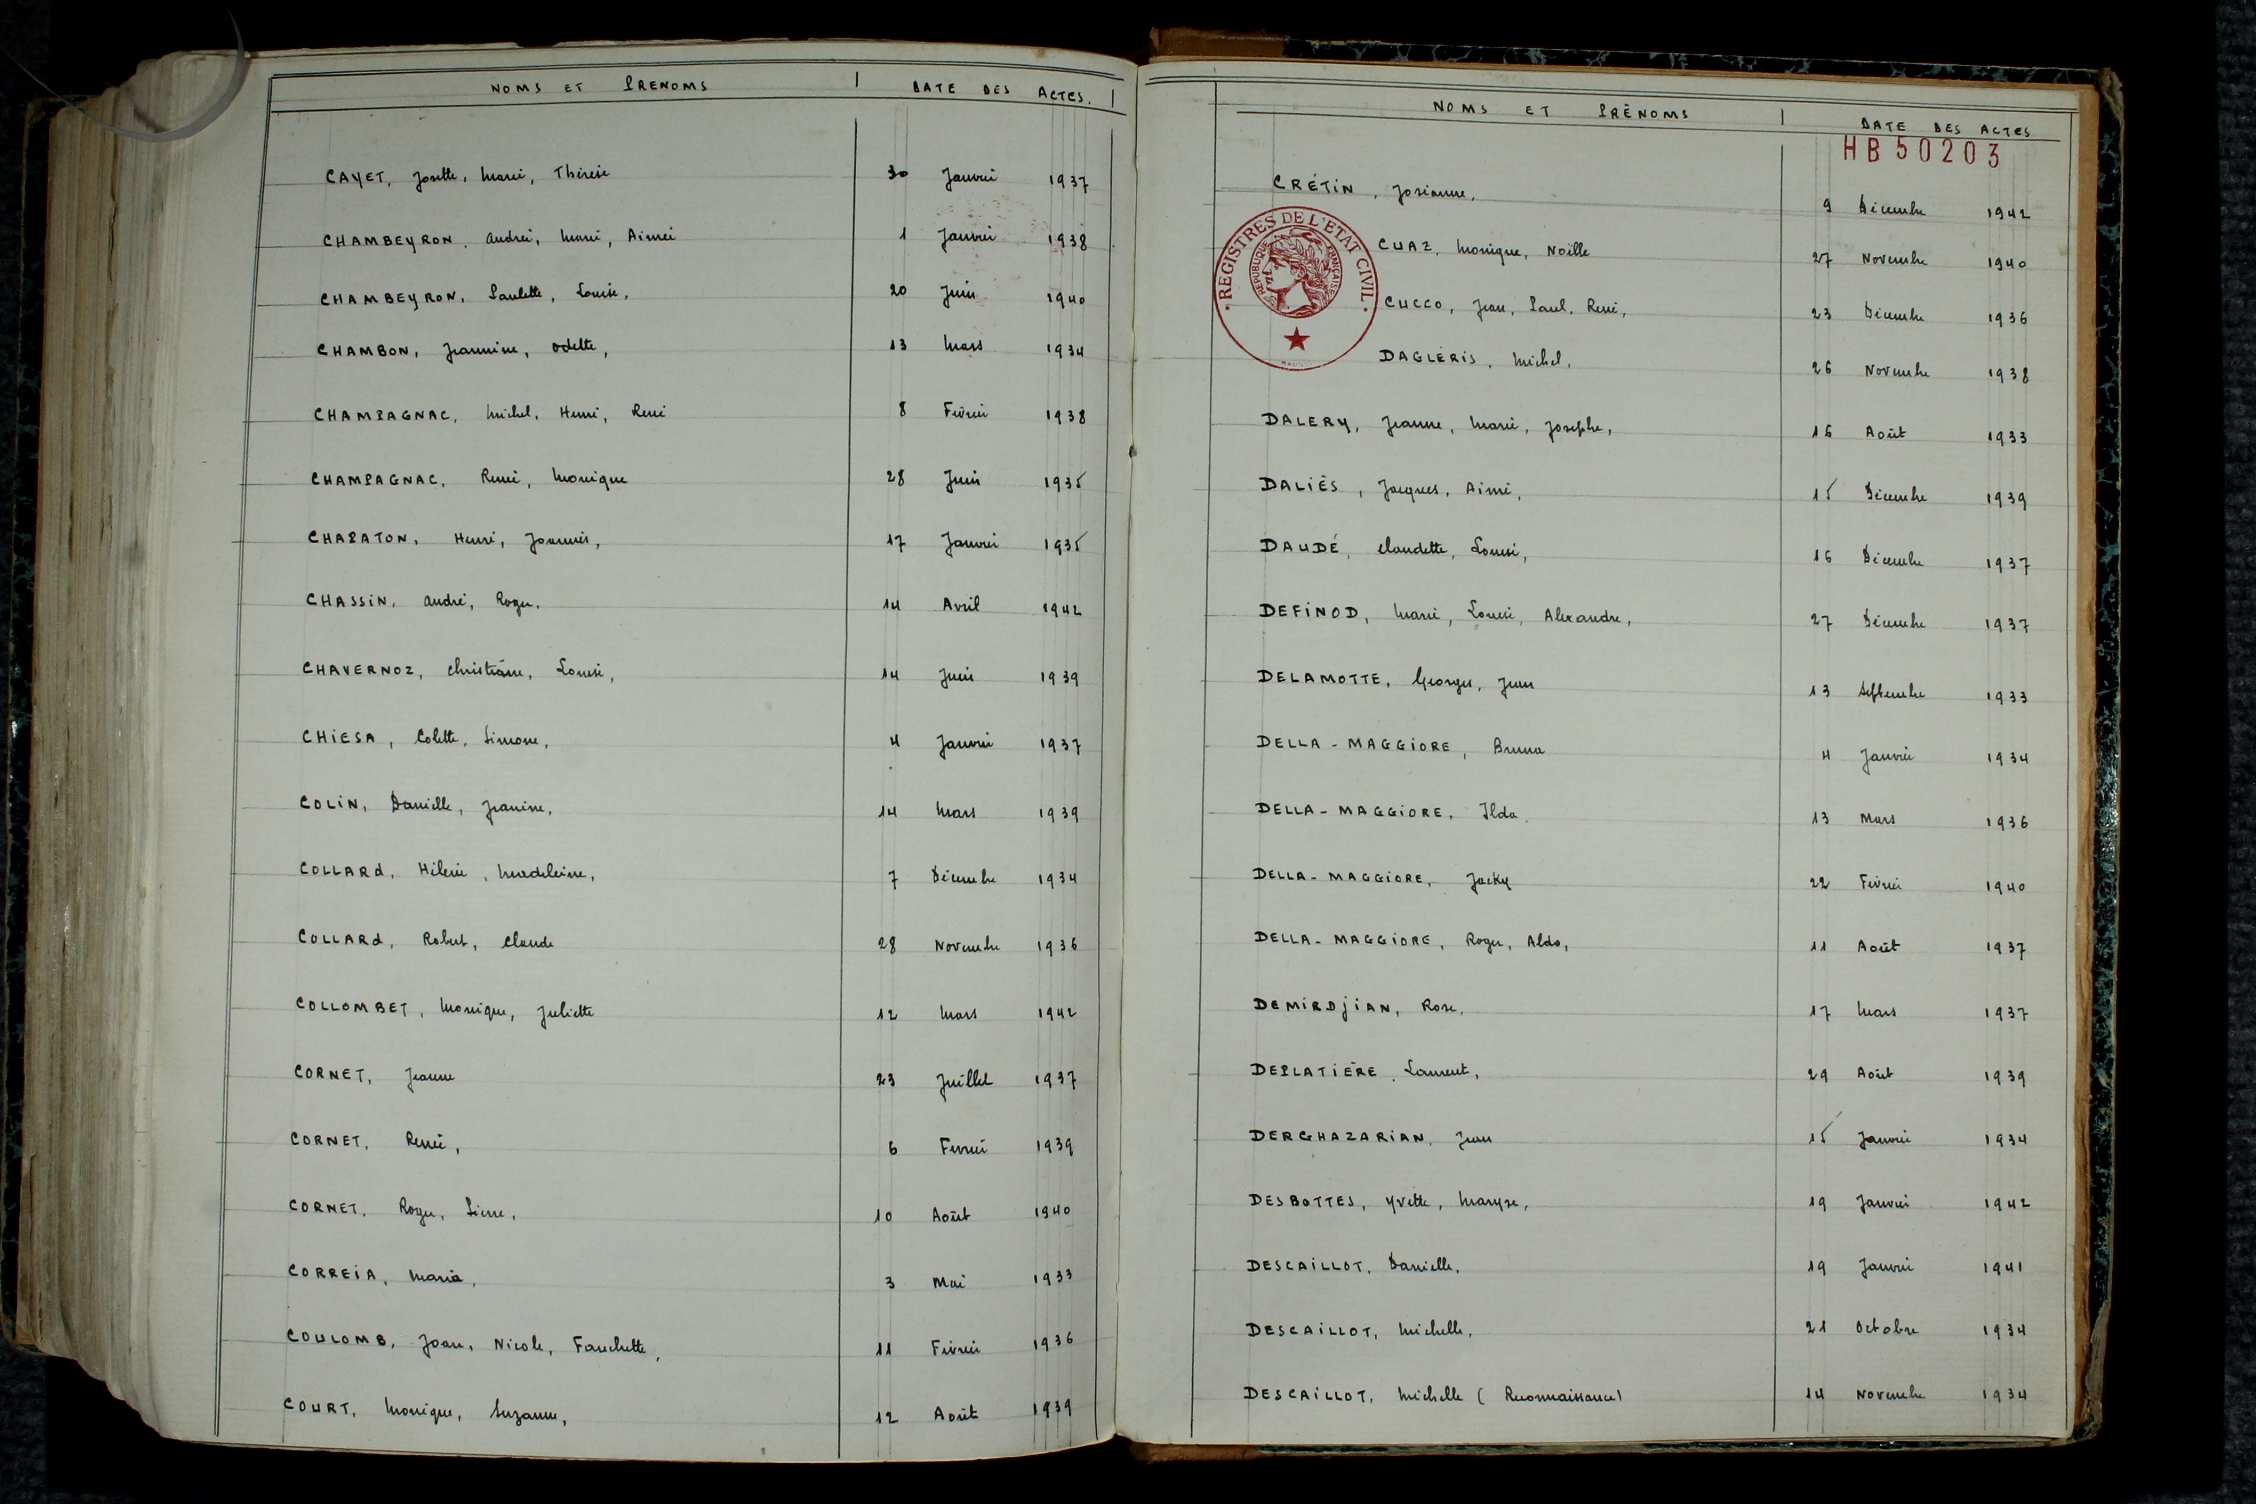 NOMS ET PRENOMS | DATE DES ACTES. |
CAYET, Josette, Marie, Thérèse 30 Janvier 1937
CHAMBEYRON, Andrée, Marie, Aimée 1 Janvier 1938
CHAMBEYRON, Paulette, Louise, 20 Juin 1940
CHAMBON, Jeannine, Odette, 13 Mars 1934
CHAMPAGNAC, Michel, Henri, René 8 Février 1938
CHAMPAGNAC, Renée, Monique 28 Juin 1935
CHAPATON, Henri, Joannès, 17 Janvier 1935
CHASSIN, André, Roger, 14 Avril 1942
CHAVERNOZ, Christiane, Louise, 14 Juin 1939
CHIESA, Colette, Simone, 4 Janvier 1937
COLIN, Danielle, Jeanine, 14 Mars 1939
COLLARD, Hélène, Madeleine, 7 Décembre 1934
COLLARD, Robert, Claude 28 Novembre 1936
COLLOMBET, Monique, Juliette 12 Mars 1942
CORNET, Jeanne 23 Juillet 1937
CORNET, Renée, 6 Fevrier 1939
CORNET, Roger, Pierre, 10 Août 1940
CORREIA, Maria, 3 Mai 1933
COULOMB, Joan, Nicole, Fanchette, 11 Février 1936
COURT, Monique, Suzanne, 12 Août 1939
NOMS ET PRÉNOMS | DATE DES ACTES
HB50203
CRÉTIN, Josianne, 9 Décembre 1942
REGISTRES DE L'ETAT CIVIL
REPUBLIQUE FRANÇAISE
CUAZ, Monique, Noëlle 27 Novembre 1940
CUCCO, Jean, Paul, René, 23 Décembre 1936
DAGLÉRIS, Michel, 26 Novembre 1938
DALERY, Jeanne, Marie, Josephe, 16 Août 1933
DALIÈS, Jacques, Aimé, 15 Décembre 1939
DAUDÉ, Claudette, Louise, 16 Décembre 1937
DEFINOD, Marie, Louise, Alexandre, 27 Décembre 1937
DELAMOTTE, Georges, Jean 13 Septembre 1933
DELLA-MAGGIORE, Bruna 4 Janvier 1934
DELLA-MAGGIORE, Ilda 13 Mars 1936
DELLA-MAGGIORE, Jacky 22 Février 1940
DELLA-MAGGIORE, Roger, Aldo, 11 Août 1937
DEMIRDJIAN, Rose, 17 Mars 1937
DEPLATIÈRE, Laurent, 29 Août 1939
DERGHAZARIAN, Jean 15 Janvier 1934
DESBOTTES, Yvette, Maryse, 19 Janvier 1942
DESCAILLOT, Danielle, 19 Janvier 1941
DESCAILLOT, Michelle, 21 Octobre 1934
DESCAILLOT, Michelle (Reconnaissance) 14 Novembre 1934